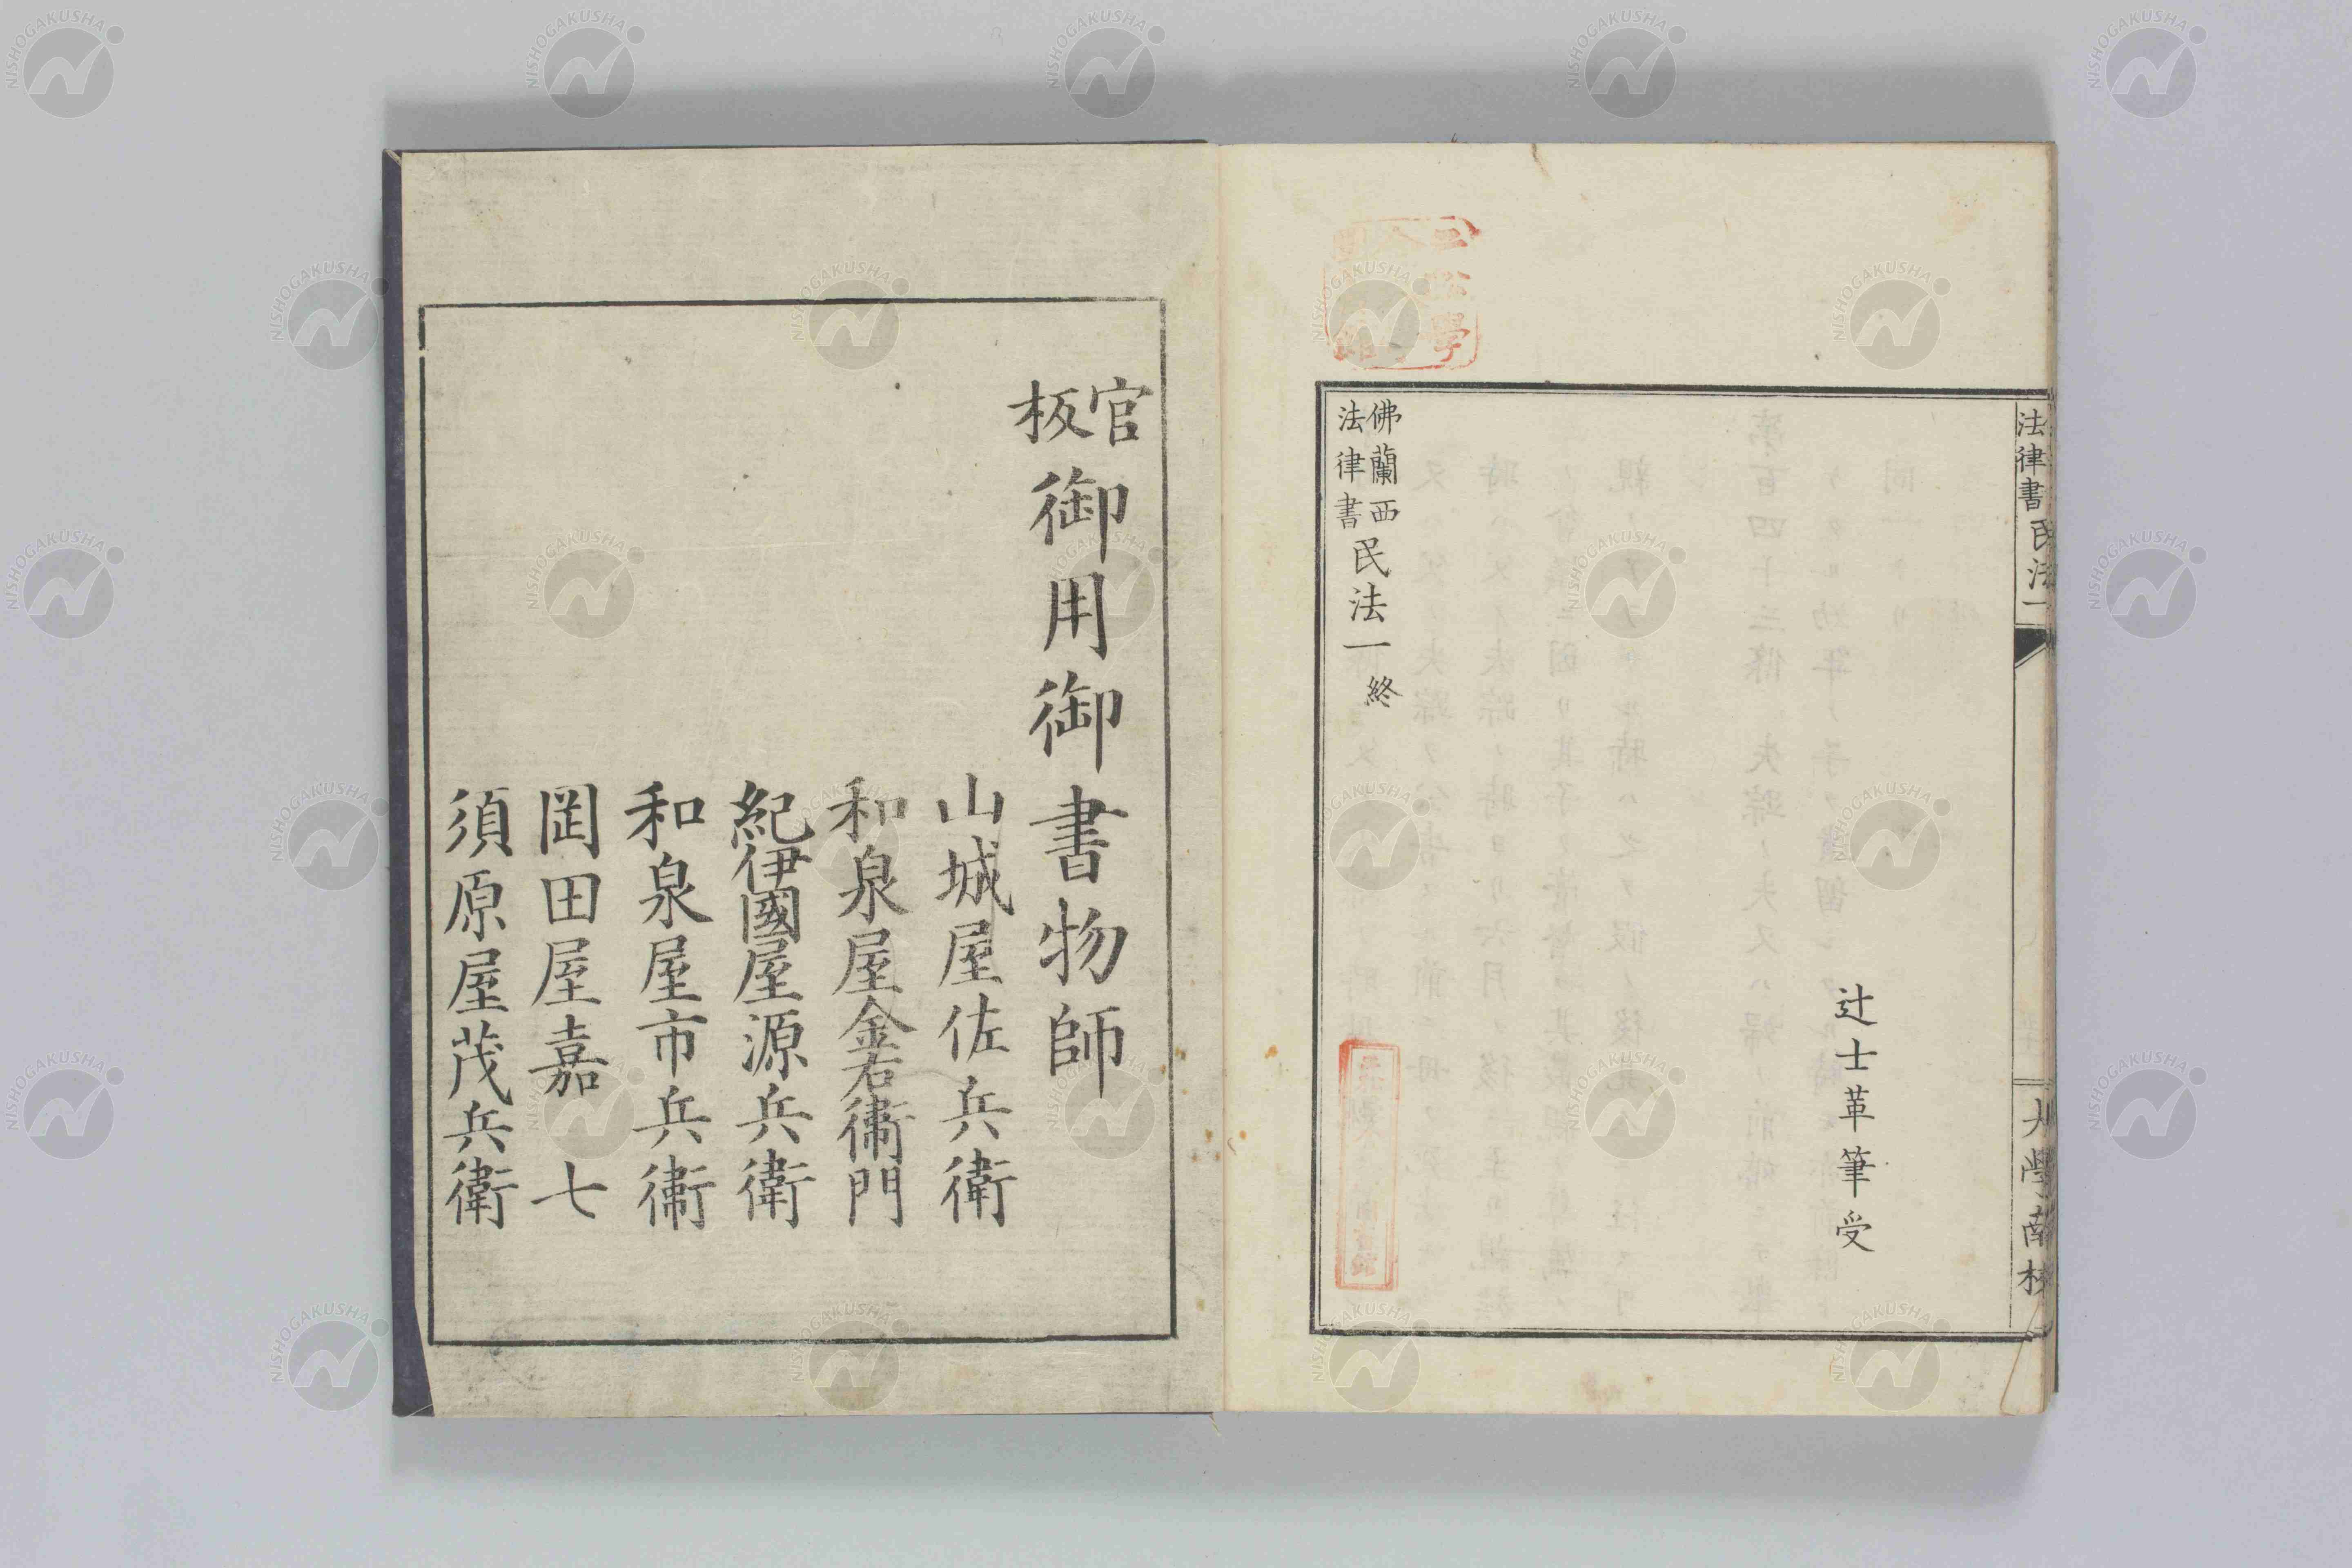 法律書民法一
大學南校
辻士革筆受
佛蘭西法律書民法一終
官板御用御書物師
山城屋佐兵衛
和泉屋金右衛門
紀伊國屋源兵衛
和泉屋市兵衛
岡田屋嘉七
須原屋茂兵衛
NISHOGAKUSHA